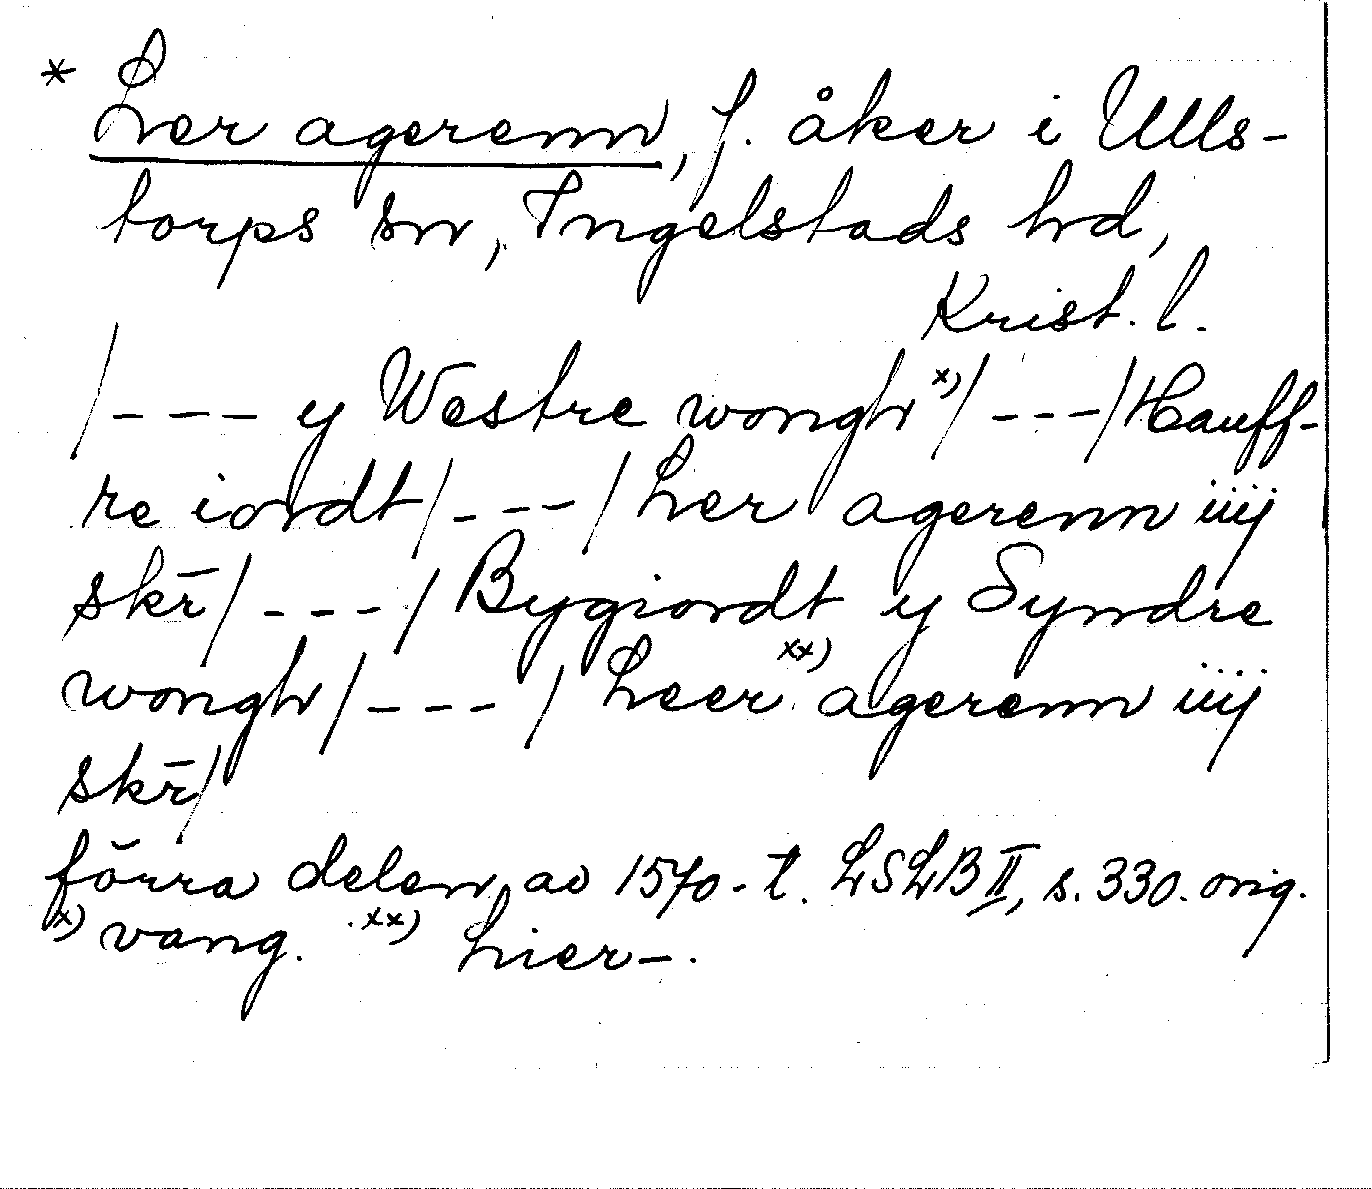 * Ler agerenn, f. åker i Ulls-
torps sn, Ingelstads hd,
Krist. l.
/--- y Westre wongh x)/---/Hauff-
re iordt/---/Ler agerenn iiij
skr̄/---/Bygiordt y Syndre
wongh/---/Leer xx) agerenn iiij
skr̄/
förra delen av 1570-t. LSLB II, s. 330. orig.
x) vang. xx) Lier-.